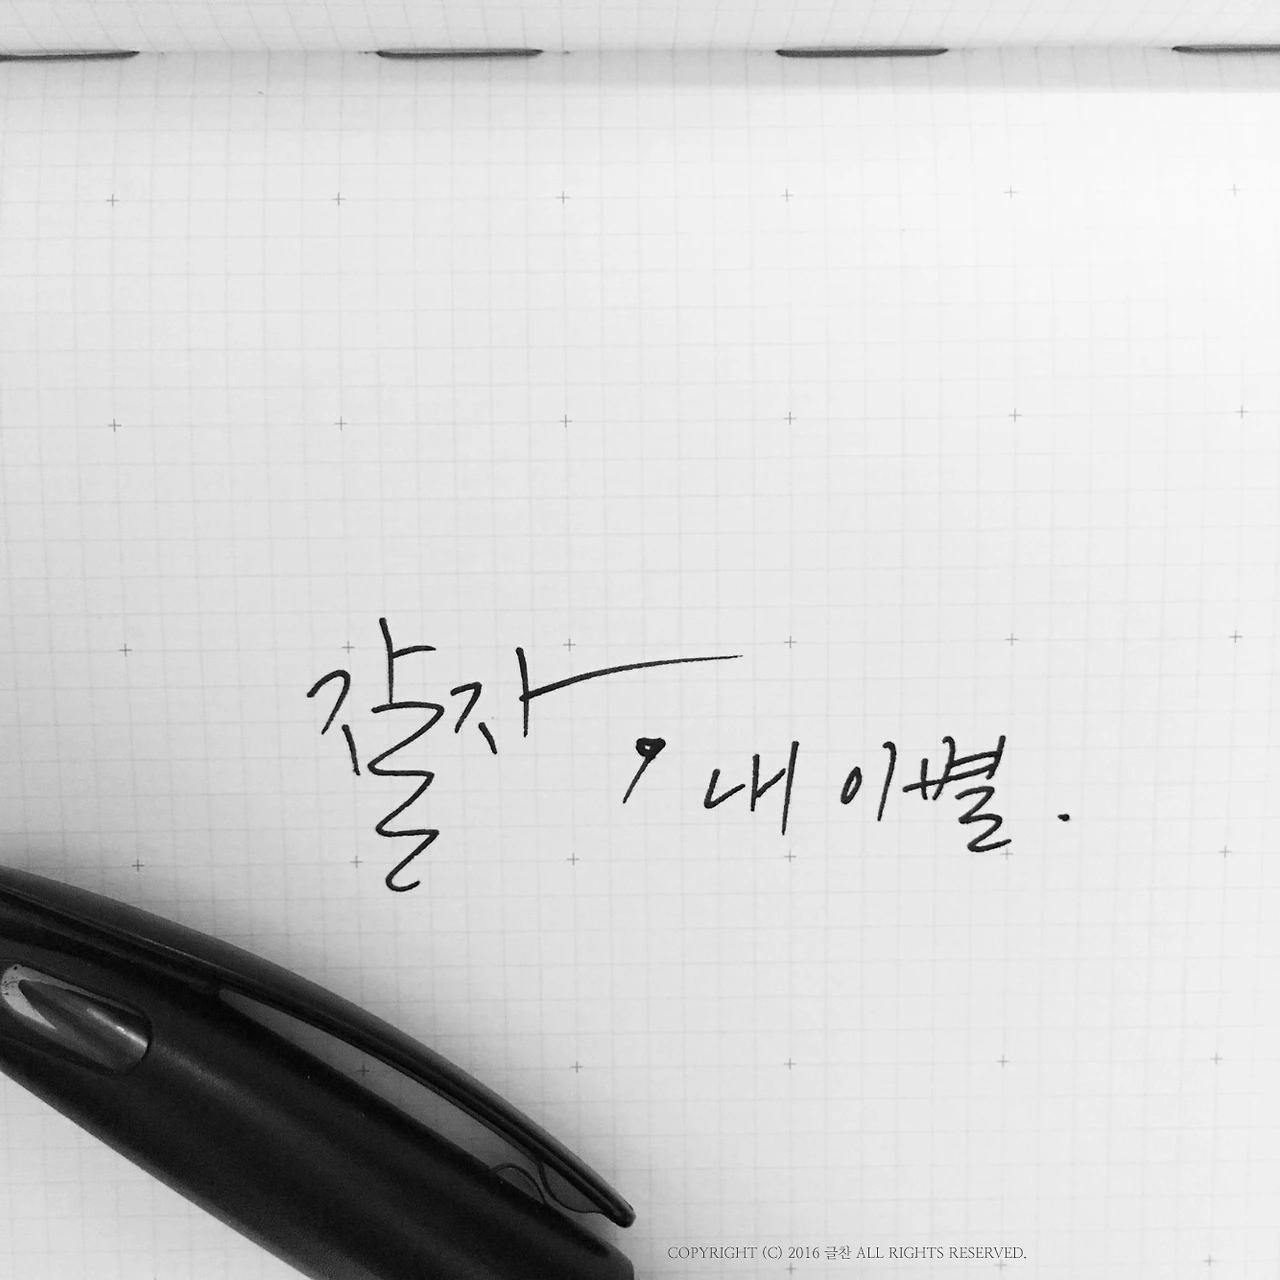 잘자, 내 이별.
COPYRIGHT (C) 2016 글찬 ALL RIGHTS RESERVED.